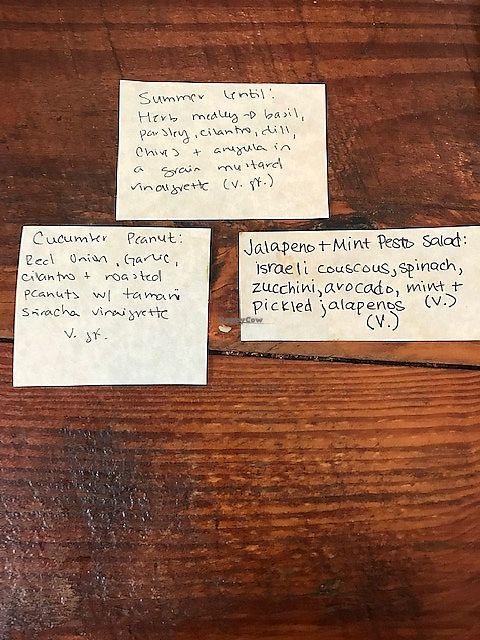 Summer Lentil:
Herb medley → basil,
parsley, cilantro, dill,
Chives + arugula in
a grain mustard
vinaigrette (v. gf.)
Cucumber Peanut:
Red Onion, Garlic,
cilantro + roasted
peanuts w/ tamari
sriracha vinaigrette
V. gf.
Jalapeno + Mint Pesto Salad:
Israeli couscous, spinach,
zucchini, avocado, mint +
pickled jalapenos (V.)
(V.)